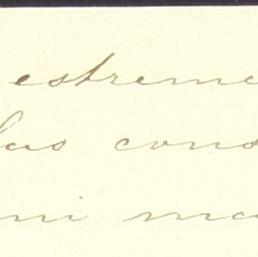 estreme
las cons
mi ma